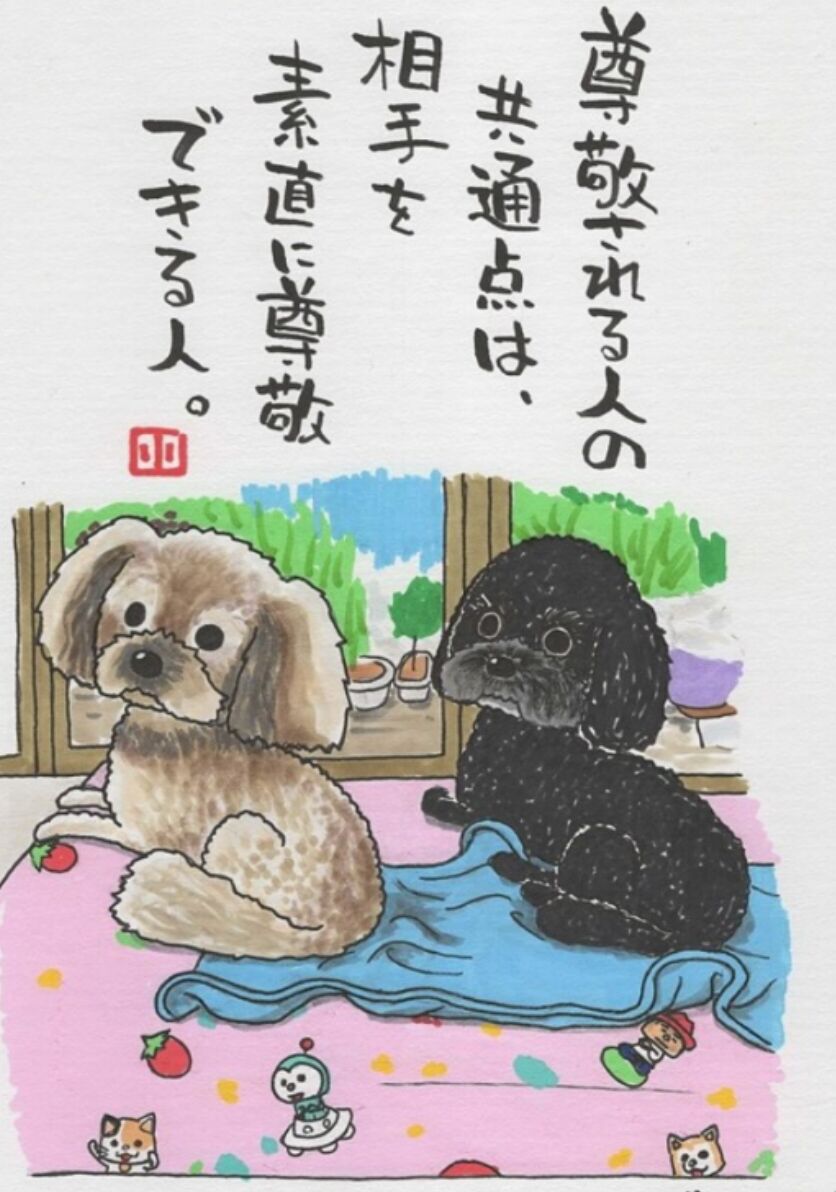 尊敬される人の
共通点は、
相手を
素直に尊敬
できる人。